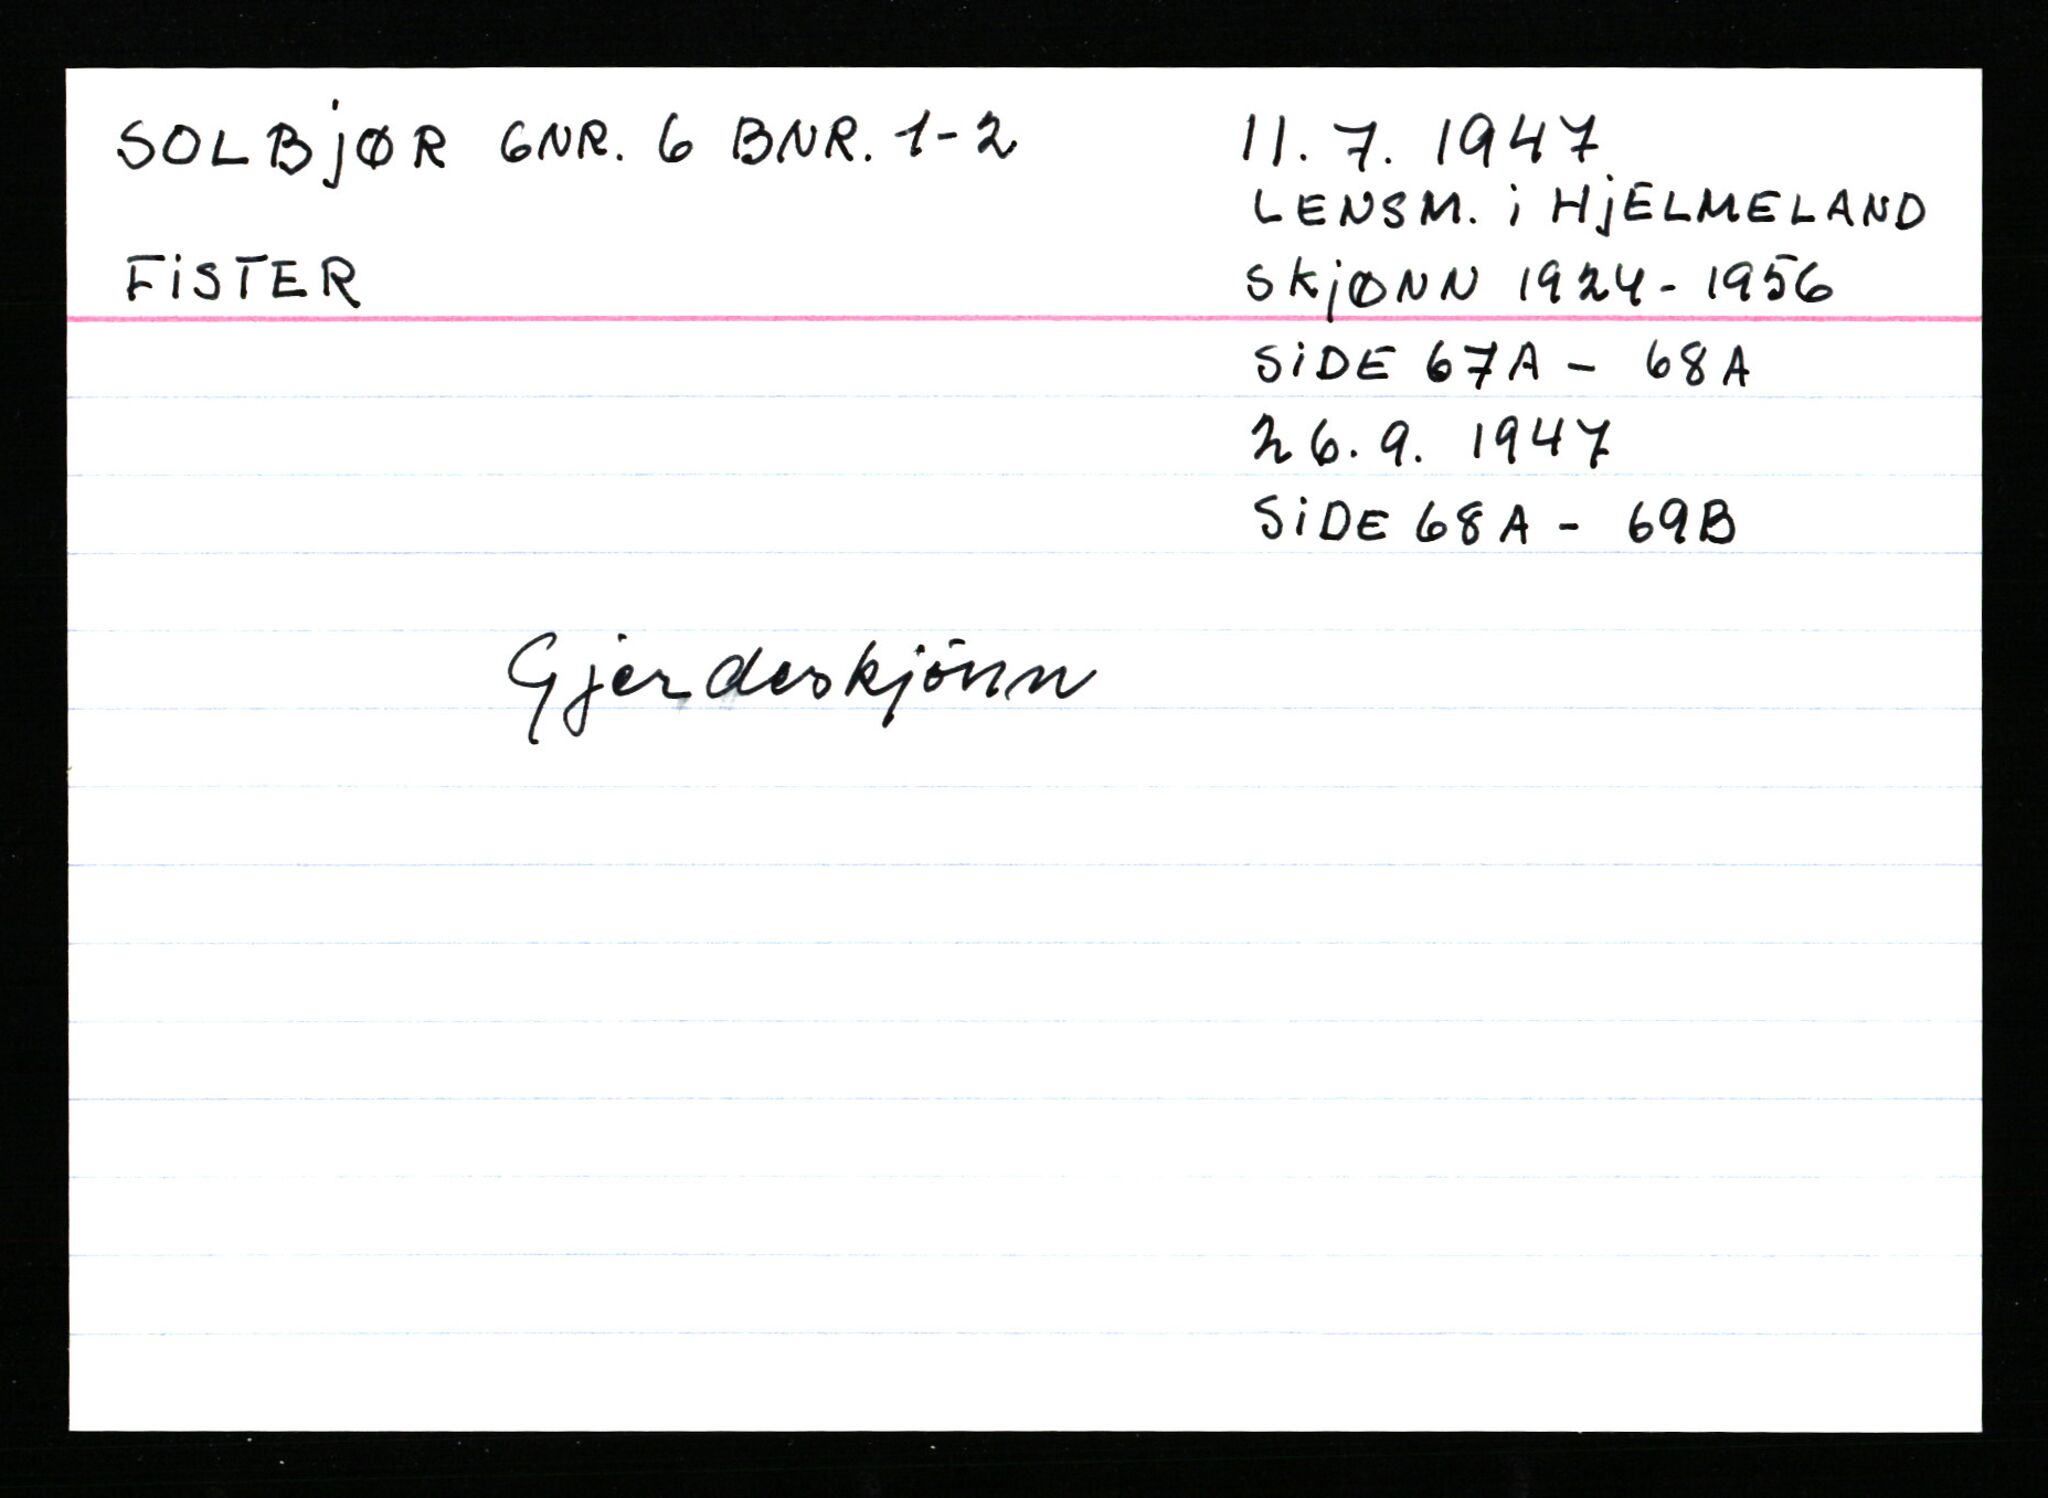 SOLBjØR GNR. 6 BNR. 1-2
FiSTER
11. 7. 1947
LENSM. i HjELMELAND
SkjØNN 1924 - 1956
SiDE 67A - 68A
26. 9. 1947
SiDE 68A - 69B
Gjerdeskjönn